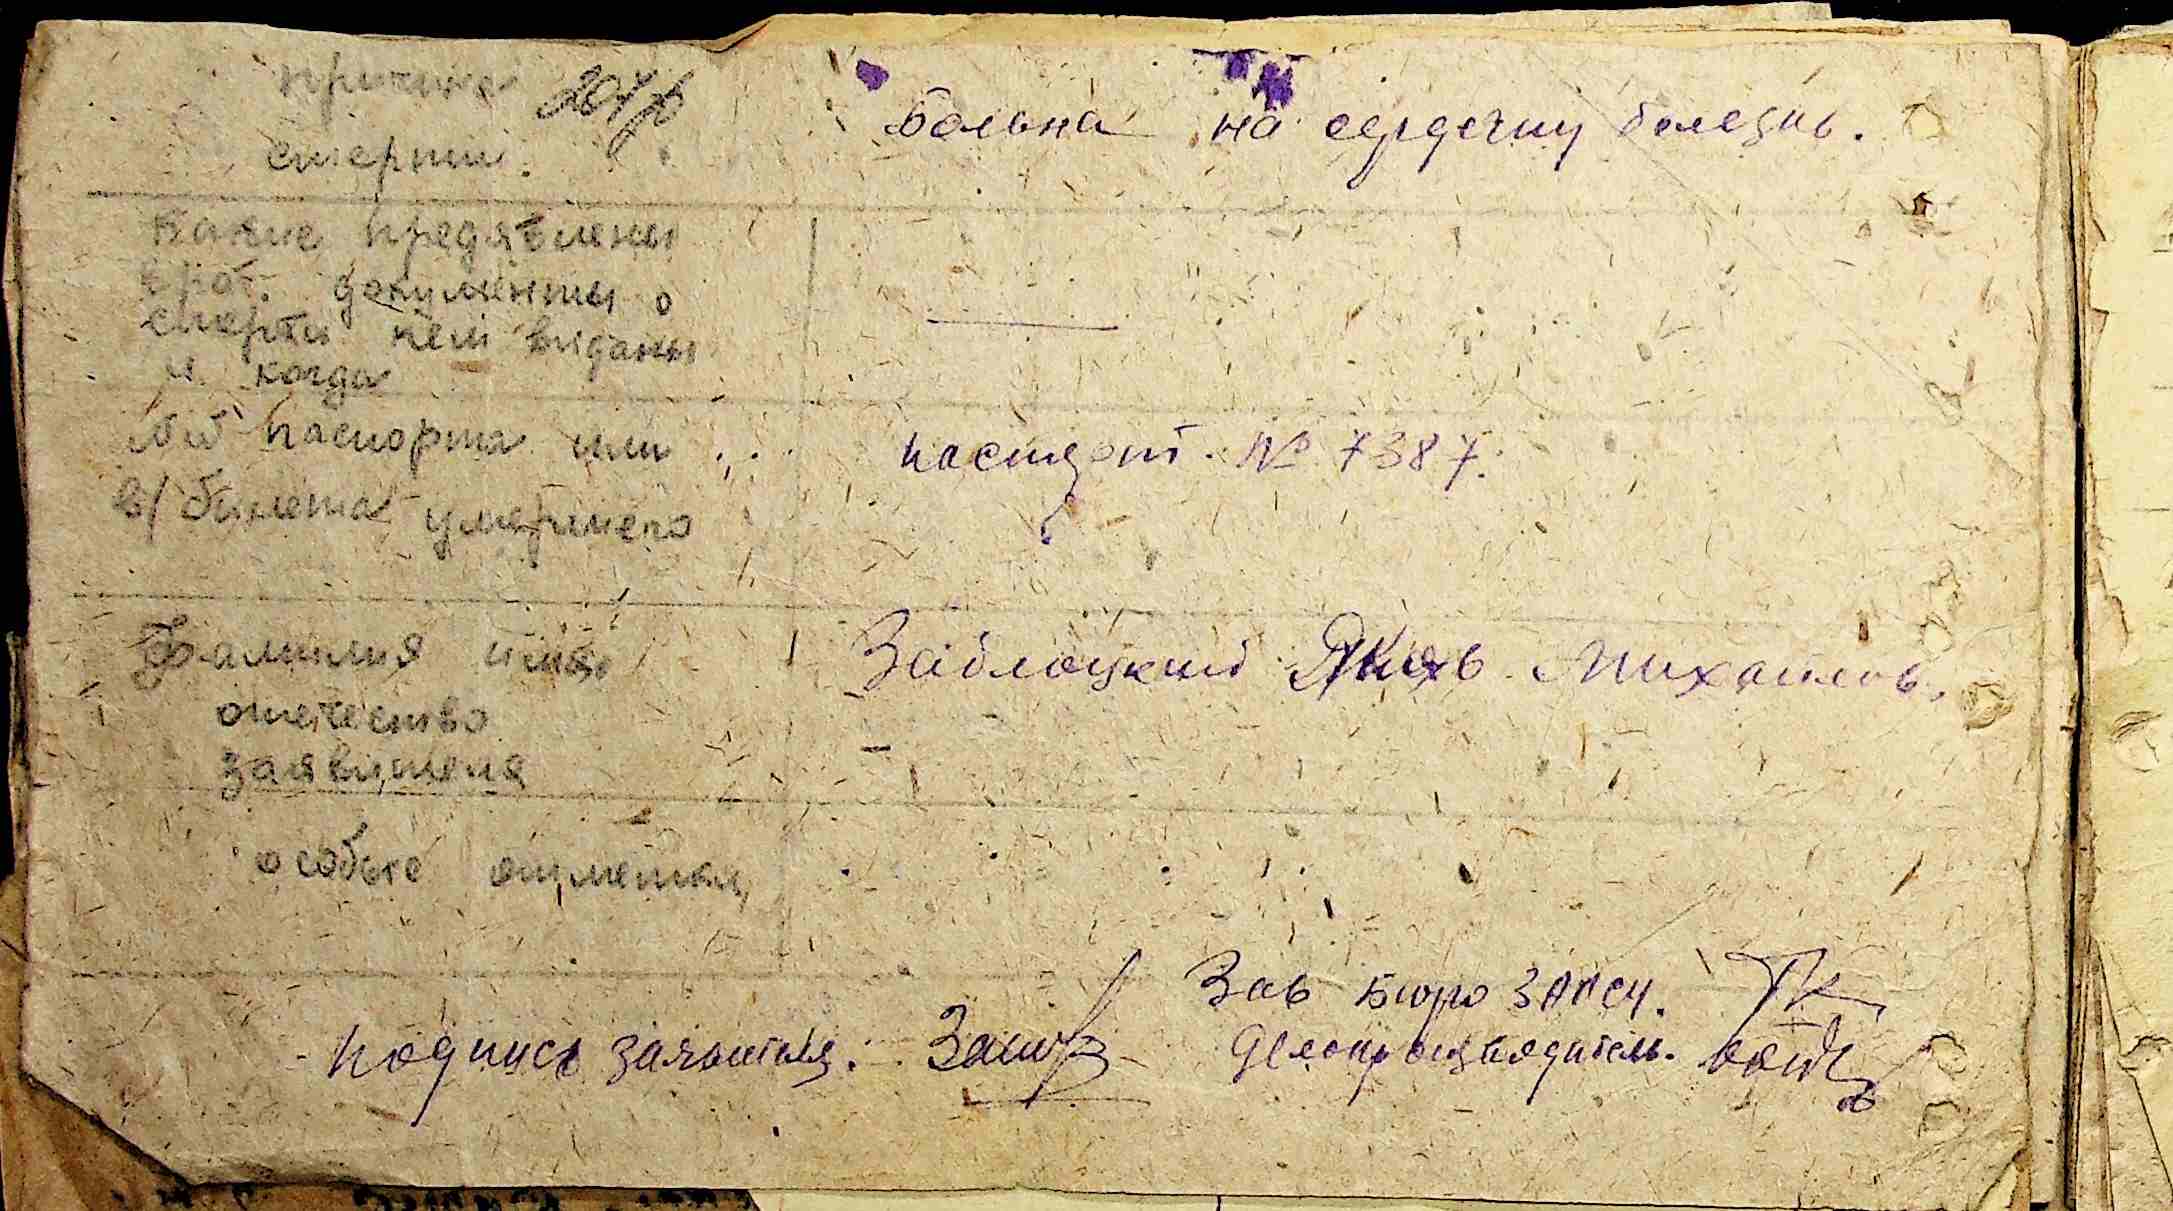 причина
смерти.
Больна на сердечну болезнь.
Какие предявлены
документы о
смерти кем виданы
и когда
№№ паспорта или
в/билета умершего
паспорт. № 7387.
Фамилия имя
отечество
заявителя
Заблоцкий Яков Михайлов.
особые отметки
Зав Бюро ЗАГСУ.
Подпись заявителя.
Делопроизводитель.